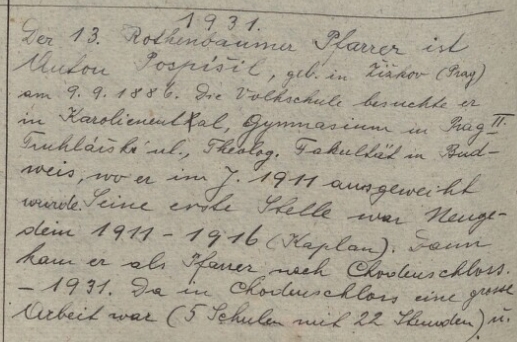 1931.
Der 13. Rothenbaumer Pfarrer ist
Anton Pospíšil, geb. in Žižkov (Prag)
am 9. 9. 1886. Die Volkschule besuchte er
in Karolienental, Gymnasium in Prag II.
Truhlářská ul., Theolog. Fakultät in Bud-
weis, wo er im J. 1911 ausgeweiht
wurde. Seine erste Stelle war Neuge-
dein 1911 - 1916 (Kaplan). Dann
kam er als Pfarrer nach Chodenschloss.
- 1931. Da in Chodenschloss eine grosse
Arbeit war (5 Schulen mit 22 Stunden) u.